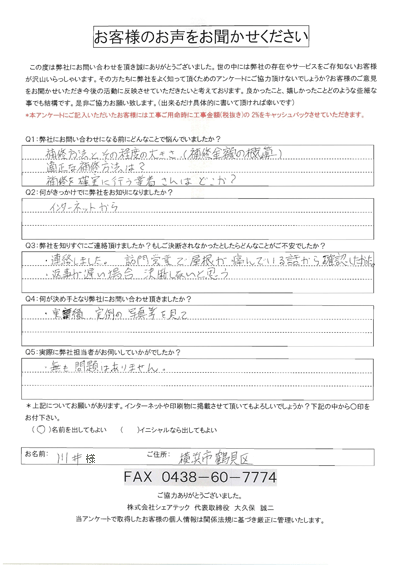 お客様のお声をお聞かせください
この度は弊社にお問い合わせを頂き誠にありがとうございました。世の中には弊社の存在やサービスをご存知ないお客様
が沢山いらっしゃいます。その方たちに弊社をよく知って頂くためのアンケートにご協力頂けないでしょうか？お客様のご意見
をお聞かせいただき今後の活動に反映させていただきたいと考えております。良かったこと、嬉しかったことどのような些細な
事でも結構です。是非ご協力お願い致します。（出来るだけ具体的に書いて頂ければ幸いです）
*本アンケートにご記入いただいたお客様には工事ご用命時に工事金額（税抜き）の 2%をキャッシュバックさせていただきます。
Q1：弊社にお問い合わせになる前にどんなことで悩んでいましたか？
補修方法とその程度の大きさ（補修金額の概算）
適正な補修方法は？
補修を確実に行う業者さんはどこか？
Q2：何がきっかけでに弊社をお知りになりましたか？
インターネットから
Q3：弊社を知りすぐにご連絡頂けましたか？もしご決断されなかったとしたらどんなことがご不安でしたか？
・連絡しました。訪問営業で屋根が痛んでいる話から確認したため。
・返事が遅い場合 決断しないと思う
Q4：何が決め手となり弊社にお問い合わせ頂きましたか？
・実績 実例の写真等を見て
Q5：実際に弊社担当者がお伺いしていかがでしたか？
・無も問題はありません。
＊上記についてお願いがあります。インターネットや印刷物に掲載させて頂いてもよろしいでしょうか？下記の中から〇印を
お付下さい。
（〇）名前を出してもよい （ ）イニシャルなら出してもよい
お名前： 川井 様 ご住所： 横浜市鶴見区
FAX 0438－60－7774
ご協力ありがとうございました。
株式会社シェアテック 代表取締役 大久保 誠二
当アンケートで取得したお客様の個人情報は関係法規に基づき厳正に管理いたします。